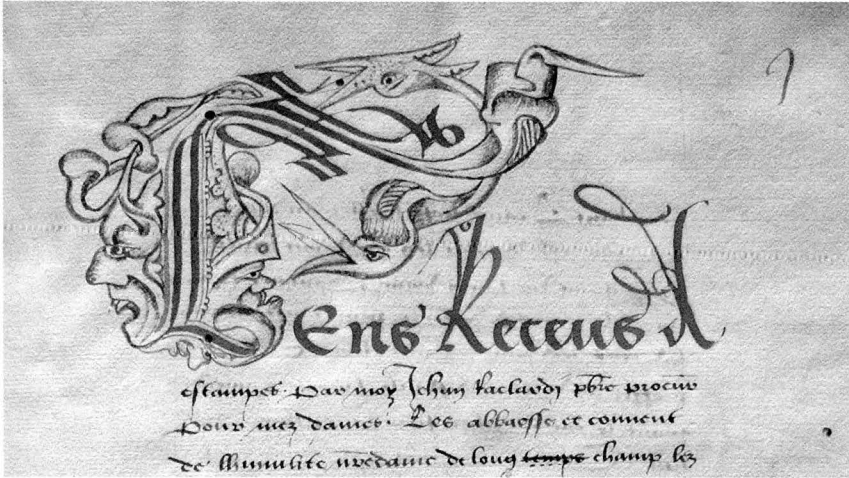 CEns Receus A
estampes. Par moy Jehan pbre procur
Pour mez dames. Les abbaesse et couvent
de lhumilite nredame de long temps champ lez